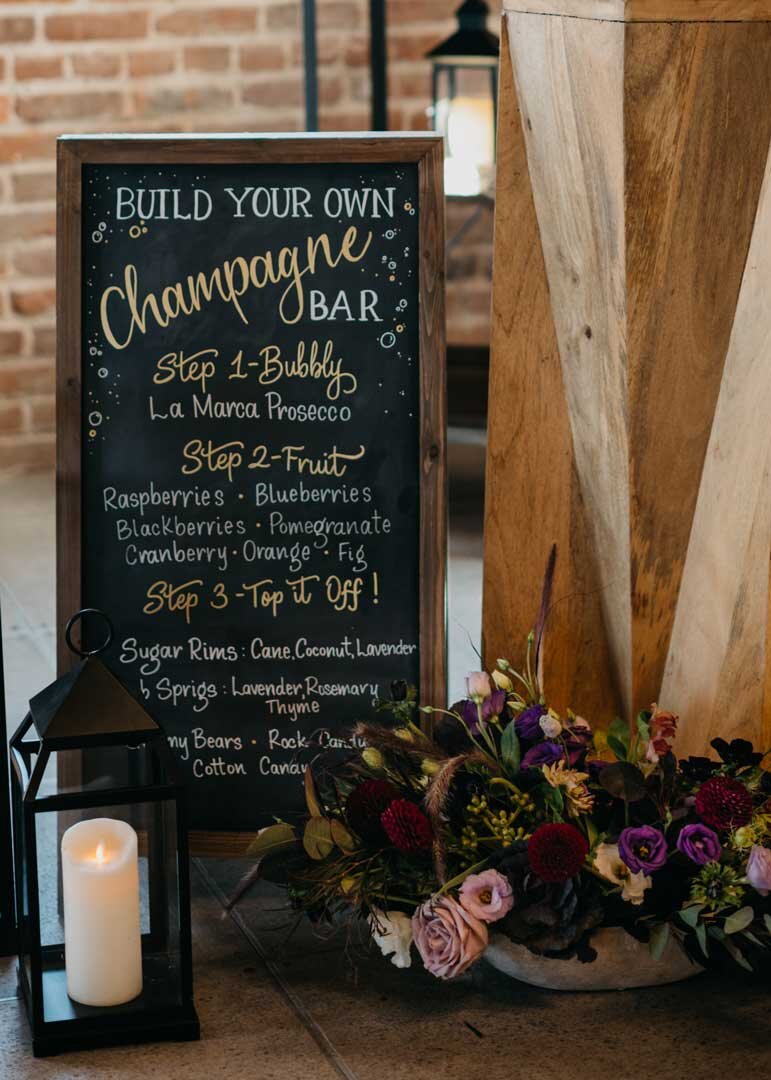 BUILD YOUR OWN
Champagne
BAR
Step 1-Bubbly
La Marca Prosecco
Step 2-Fruit
Raspberries • Blueberries
Blackberries • Pomegranate
Cranberry • Orange • Fig
Step 3-Top it Off!
Sugar Rims: Cane, Coconut, Lavender
Sprigs: Lavender, Rosemary
Thyme
Bears • Rock Candy
Cotton